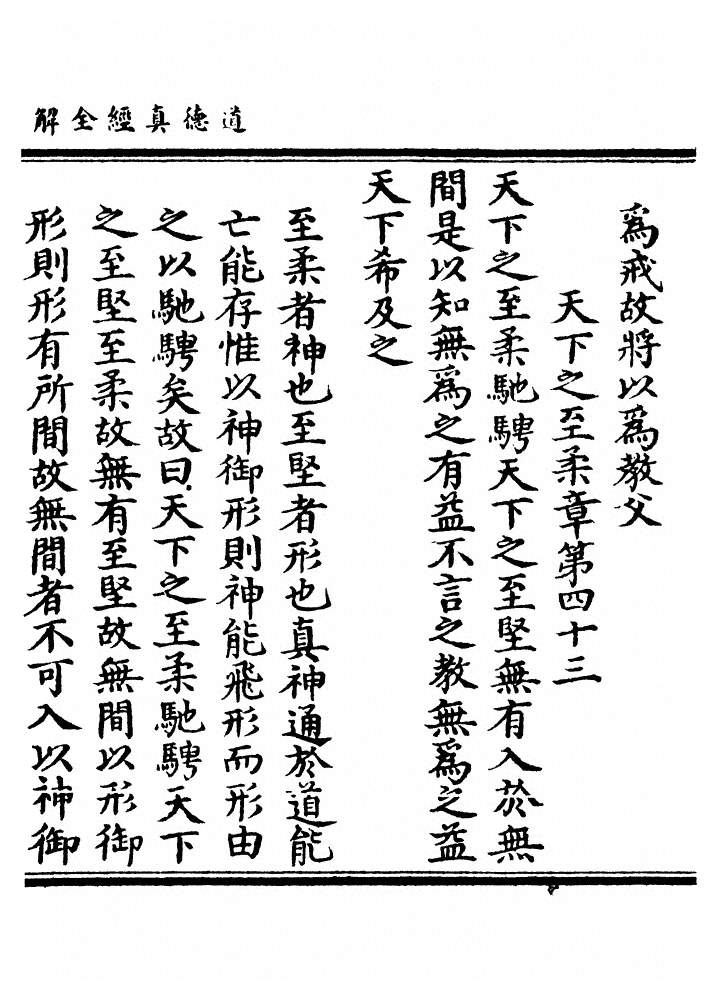 道德真經全解
爲戒故將以爲教父
天下之至柔章第四十三
天下之至柔馳騁天下之至堅無有入於無
間是以知無爲之有益不言之教無爲之益
天下希及之
至柔者神也至堅者形也真神通於道能
亡能存惟以神御形則神能飛形而形由
之以馳騁矣故曰天下之至柔馳騁天下
之至堅至柔故無有至堅故無間以形御
形則形有所間故無間者不可入以神御